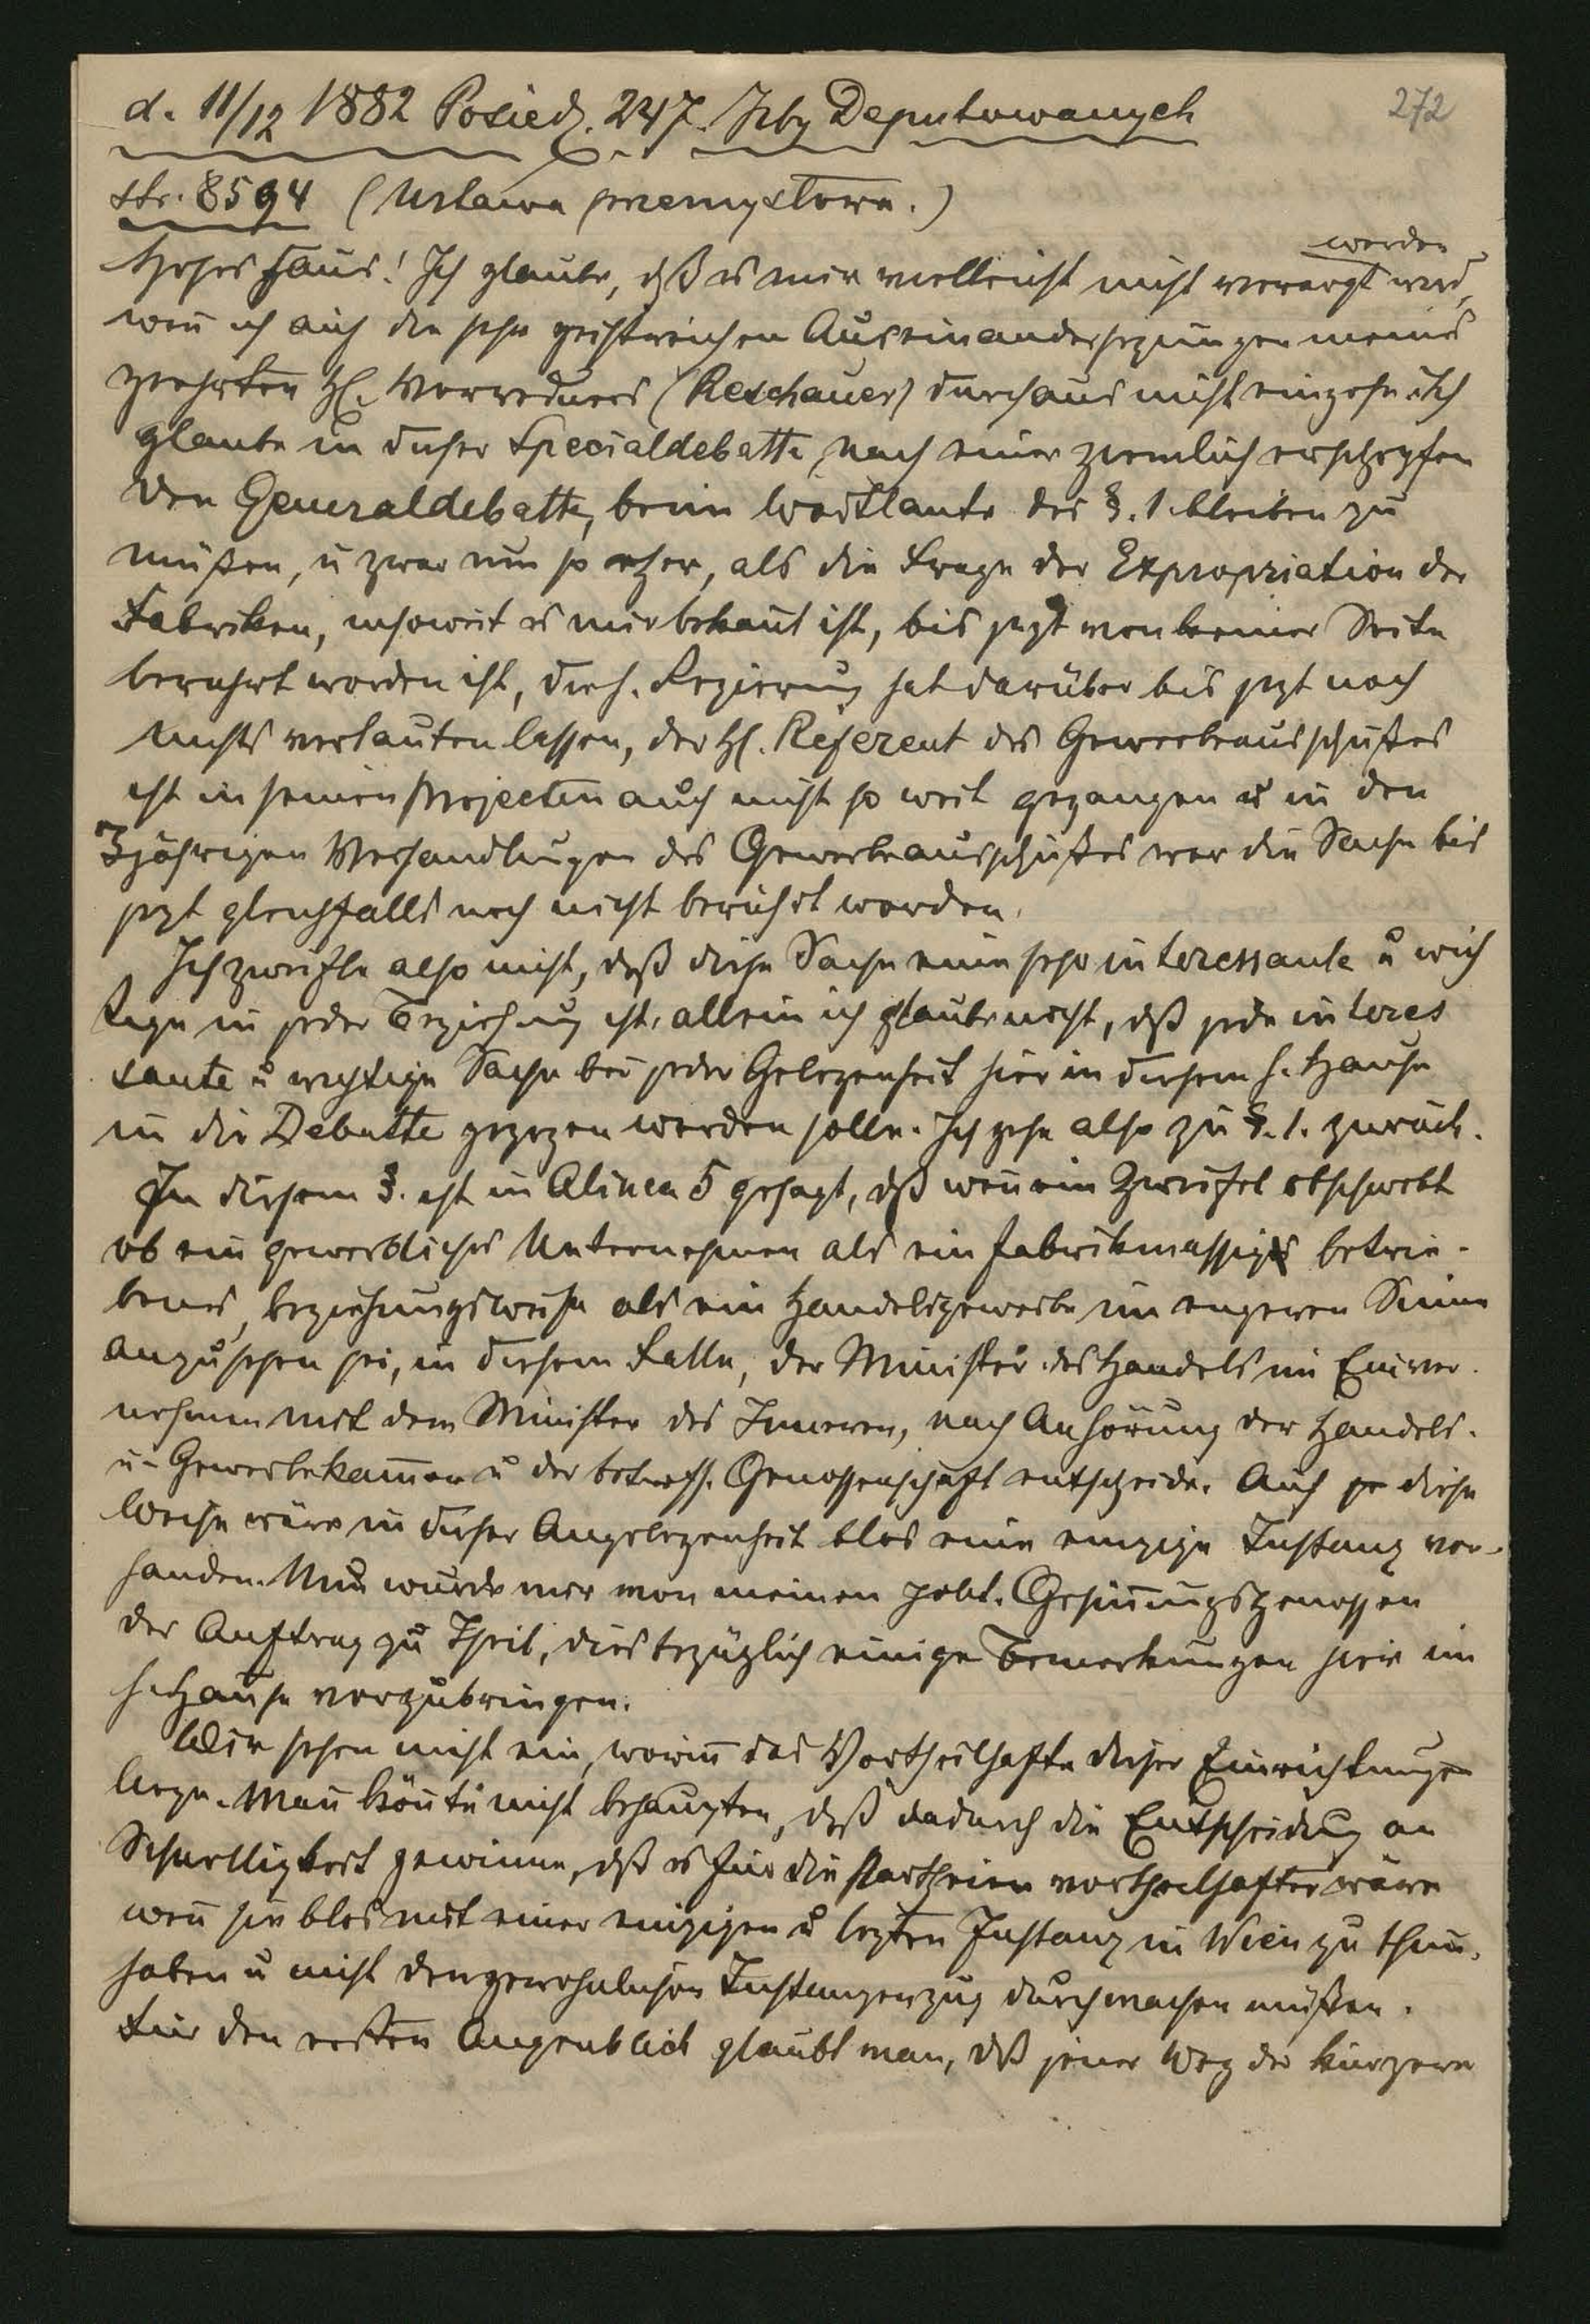 d. 11/12 1882 Posiedz. 247. Izby Deputowanych 272
str. 8594 (Ustawa przemysłowa.)
werden
Hohes Haus! Ich glaube, dß es mir vielleicht nicht verargt wird,
wenn ich auf die sehr geistreichen Auseinandersezungen meines
geehrten H. Vorredners (Reschauer) durchaus nicht eingehe. Ich
glaube in dieser Specialdebatte, nach einer ziemlich erschöpfen
den Generaldebatte, beim Wortlaute des §. 1. bleiben zu
müßen, u zwar um so eher, als die Frage der Expropriation der
Fabriken, insoweit es mir bekannt ist, bis jezt von keiner Seite
berührt worden ist, die h. Regierung hat darüber bis jezt noch
nichts verlauten lassen, der H. Referent des Gewerbeausschußes
ist in seinen Projecten auch nicht so weit gegangen u in den
3jährigen Verhandlungen des Gewerbeausschußes war die Sache bis
jezt gleichfalls noch nicht berührt worden.
Ich zweifle also nicht, daß diese Sache eine sehr interessante u wich
tige in jeder Beziehung ist, allein ich glaube nicht, dß jede interes
sante u wichtige Sache bei jeder Gelegenheit hier in diesem h. Hause
in die Debatte gezogen werden solle. Ich gehe also zu §. 1. zurück.
In diesem §. ist in Alinea 5 gesagt, dß wenn ein Zweifel obschwebt
ob ein gewerbliches Unternehmen als ein fabrikmassig betrie-
benes, beziehungsweise als ein Handelsgewerbe im engeren Sinne
anzusehen sei, in diesem Falle, der Minister des Handels im Einver-
nehmen mit dem Minister des Inneren, nach Anhörung der Handels-
u- Gewerbekammer u der betreff. Genossenschaft entscheide. Auf diese
Weise wäre in dieser Angelegenheit blos eine einzige Instanz vor-
handen. Nun wurde mir von meinen polit. Gesinnungsgenossen
der Auftrag zu Theil, diesbezüglich einige Bemerkungen hier im
h. Hause vorzubringen.
Wir sehen nicht ein, worin das Vortheilhafte dieser Einrichtungen
liege. Man könnte nicht behaupten, daß dadurch die Entscheidung an
Schnelligkeit gewinne, dß es für die Partheien vortheilhafter wäre
wenn sie blos mit einer einzigen u lezten Instanz in Wien zu thun
haben u nicht den gewöhnlichen Instanzenzug durchmachen müßen.
Für den ersten Augenblick glaubt man, dß jener Weg der kürzere